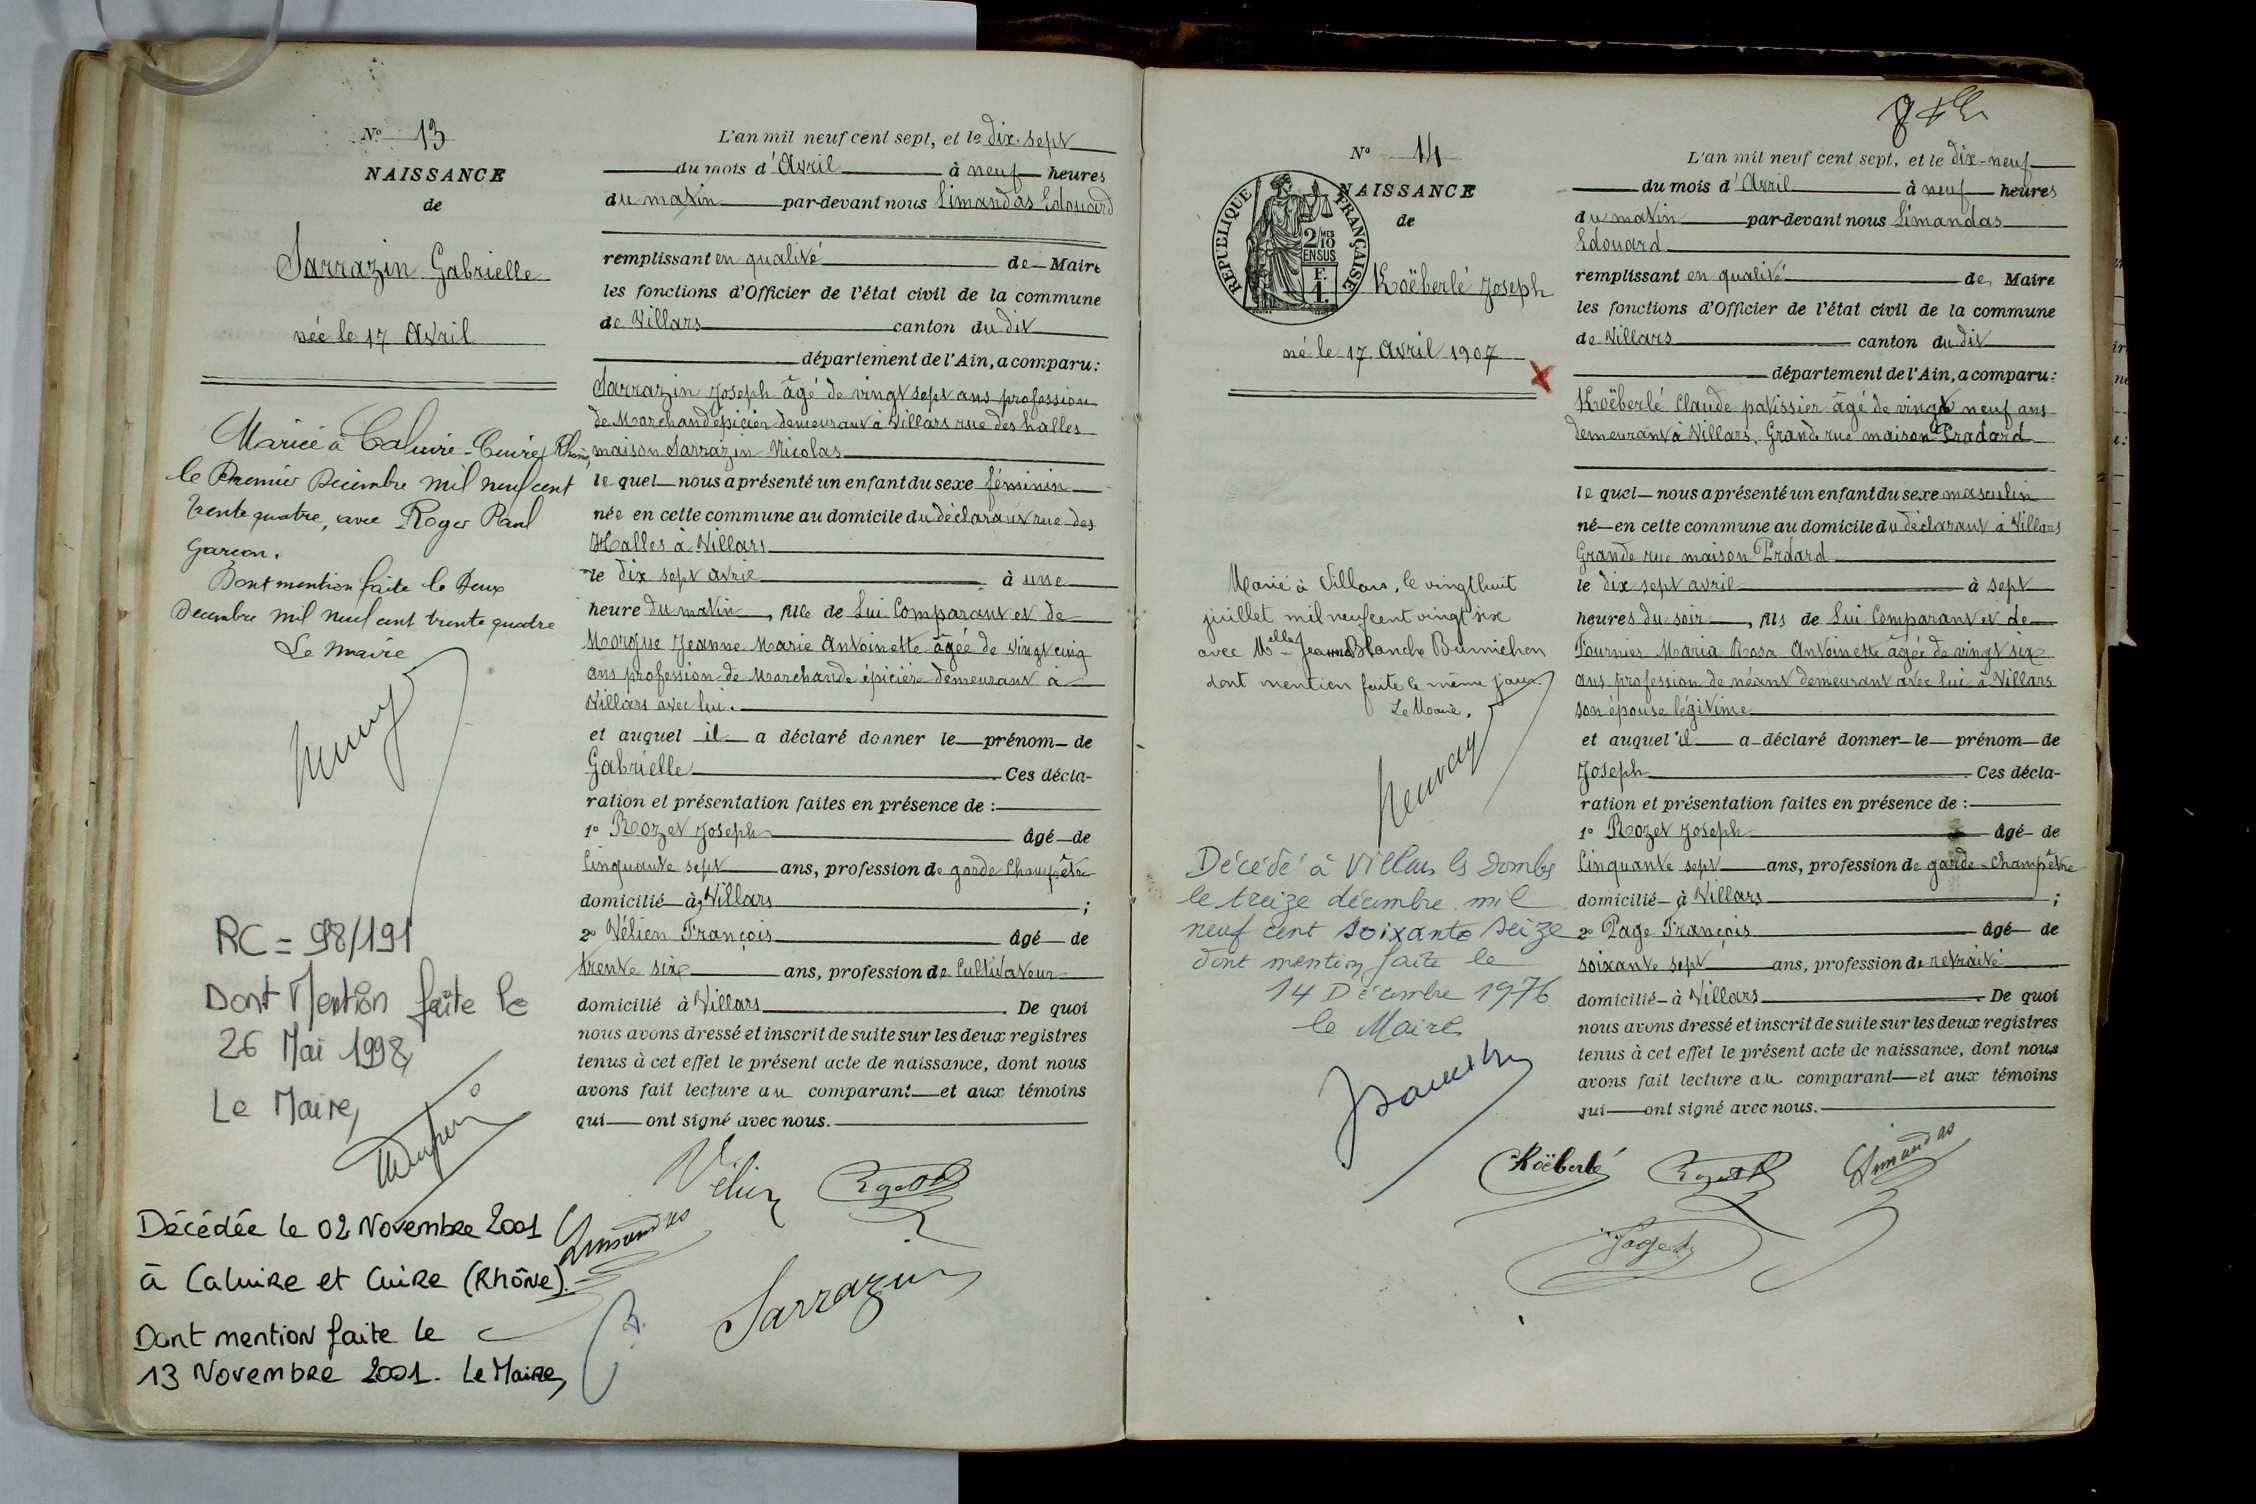 N° 13
NAISSANCE
de
Sarrazin Gabrielle
née le 17 Avril
Mariée à Caluire-Cuire, Rhône,
le Premier Décembre mil neuf cent
trente quatre, avec Roger Paul
Garçon.
Dont mention faite le Deux
Décembre mil neuf cent trente quatre
Le Maire
RC = 98/191
Dont Mention faite le
26 Mai 1998,
Le Maire,
Décédée le 02 Novembre 2001
à Caluire et Cuire (Rhône).
Dont mention faite le
13 Novembre 2001. Le Maire,
L'an mil neuf cent sept, et le dix-sept
du mois d'Avril à neuf heures
du matin par-devant nous Limandas Edouard
remplissant en qualité de Maire
les fonctions d'Officier de l'état civil de la commune
de Villars canton du dit
département de l'Ain, a comparu:
Sarrazin Joseph âgé de vingt sept ans profession
de Marchand épicier demeurant à Villars rue des halles
maison Sarrazin Nicolas
le quel nous a présenté un enfant du sexe féminin
née en cette commune au domicile du déclarant rue des
Halles à Villars
le dix sept avril à une
heure du matin, fille de Lui Comparant et de
Morgue Jeanne Marie Antoinette âgée de vingt cinq
ans profession de Marchande épicière demeurant à
Villars avec lui.
et auquel il a déclaré donner le prénom de
Gabrielle Ces décla-
ration et présentation faites en présence de :
1° Rozet Joseph âgé de
Cinquante sept ans, profession de garde Champêtre
domicilié à Villars ;
2° Vélien François âgé de
trente six ans, profession de Cultivateur
domicilié à Villars. De quoi
nous avons dressé et inscrit de suite sur les deux registres
tenus à cet effet le présent acte de naissance, dont nous
avons fait lecture au comparant et aux témoins
qui ont signé avec nous.
Vélien
Limandas
Sarrazin
N° 14
NAISSANCE
de
RÉPUBLIQUE FRANÇAISE
2/10 MES
EN SUS
F.
1.
Koëberlé Joseph
né le 17 Avril 1907
Marié à Villars, le vingt huit
juillet mil neuf cent vingt six
avec Melle Jeanne Blanche Burnichon
dont mention faite le même jour
Le Maire.
Décédé à Villars les Dombes
le treize décembre mil
neuf cent soixante seize
dont mention faite le
14 Décembre 1976
le Maire
L'an mil neuf cent sept, et le dix-neuf
du mois d'Avril à neuf heures
du matin par-devant nous Limandas
Edouard
remplissant en qualité de Maire
les fonctions d'Officier de l'état civil de la commune
de Villars canton du dit
département de l'Ain, a comparu:
Koëberlé Claude patissier âgé de vingt neuf ans
demeurant à Villars, Grande rue maison Pradard
le quel nous a présenté un enfant du sexe masculin
né en cette commune au domicile du déclarant à Villars
Grande rue maison Prdard
le dix sept avril à sept
heures du soir, fils de Lui Comparant et de
Fournier Maria Rosa Antoinette âgée de vingt six
ans profession de néant demeurant avec lui à Villars
son épouse légitime
et auquel il a déclaré donner le prénom de
Joseph. Ces décla-
ration et présentation faites en présence de :
1° Rozet Joseph âgé de
Cinquante sept ans, profession de garde-Champêtre
domicilié à Villars ;
2° Page François âgé de
soixante sept ans, profession de retraité
domicilié à Villars. De quoi
nous avons dressé et inscrit de suite sur les deux registres
tenus à cet effet le présent acte de naissance, dont nous
avons fait lecture au comparant et aux témoins
qui ont signé avec nous.
Koëberlé
Limandas